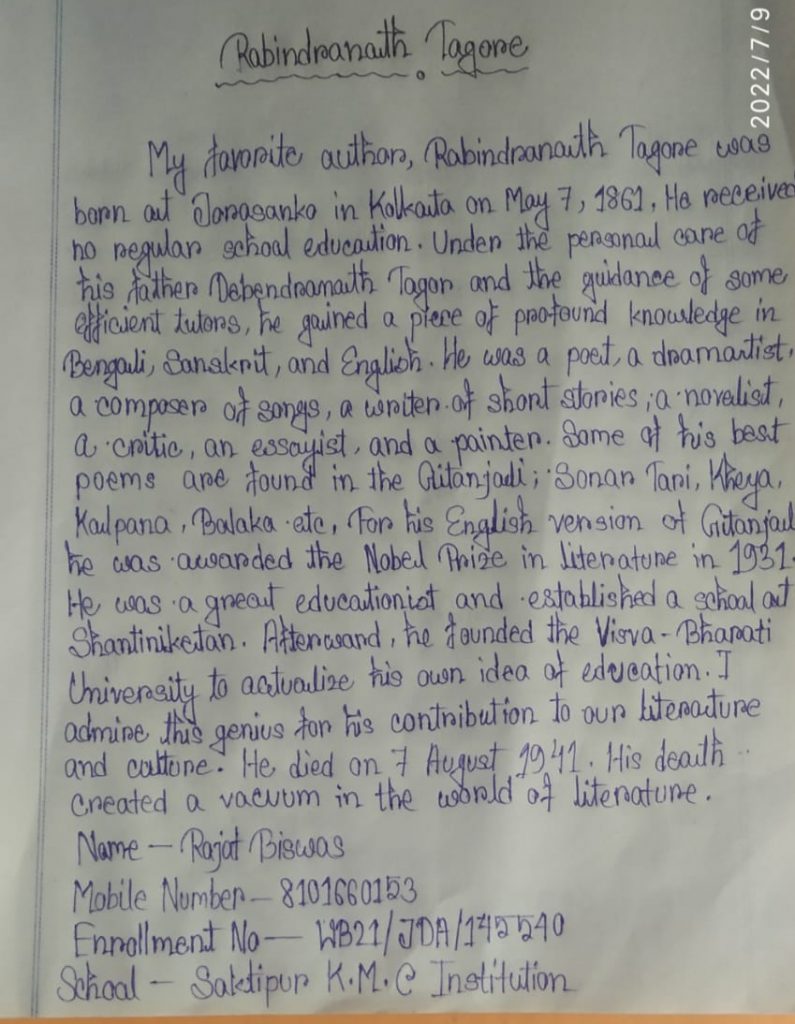 Rabindranath Tagore
2022/7/9
My favorite author, Rabindranath Tagore was
born at Jorasanko in Kolkata on May 7, 1861. He received
no regular school education. Under the personal care of
his father Debendranath Tagor and the guidance of some
efficient tutors, he gained a piece of profound knowledge in
Bengali, Sanskrit, and English. He was a poet, a dramatist,
a composer of songs, a writer of short stories, a novelist,
a critic, an essayist, and a painter. Some of his best
poems are found in the Gitanjali; Sonar Tari, Kheya,
Kalpana, Balaka etc, For his English version of Gitanjali
he was awarded the Nobel Prize in literature in 1931.
He was a great educationist and established a school at
Shantiniketan. Afterward, he founded the Visva-Bharati
University to actualize his own idea of education. I
admire this genius for his contribution to our literature
and culture. He died on 7 August 1941. His death
created a vacuum in the world of literature.
Name - Rajat Biswas
Mobile Number - 8101660153
Enrollment No - WB21/JDA/145540
School - Saktipur K.M.C Institution